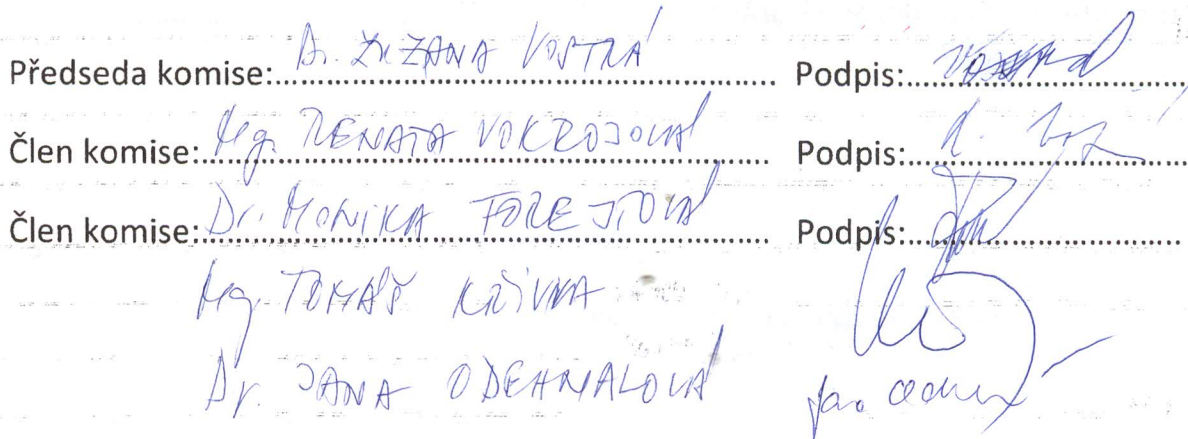 Předseda komise: Dr. ZUZANA VOSTRÁ Podpis:
Člen komise: Mg. RENATA VOKROJOVÁ Podpis:
Člen komise: Dr. MONIKA FOREJTOVÁ Podpis:
Mg. TOMÁŠ KŘIVKA
Dr. JANA ODEHNALOVÁ